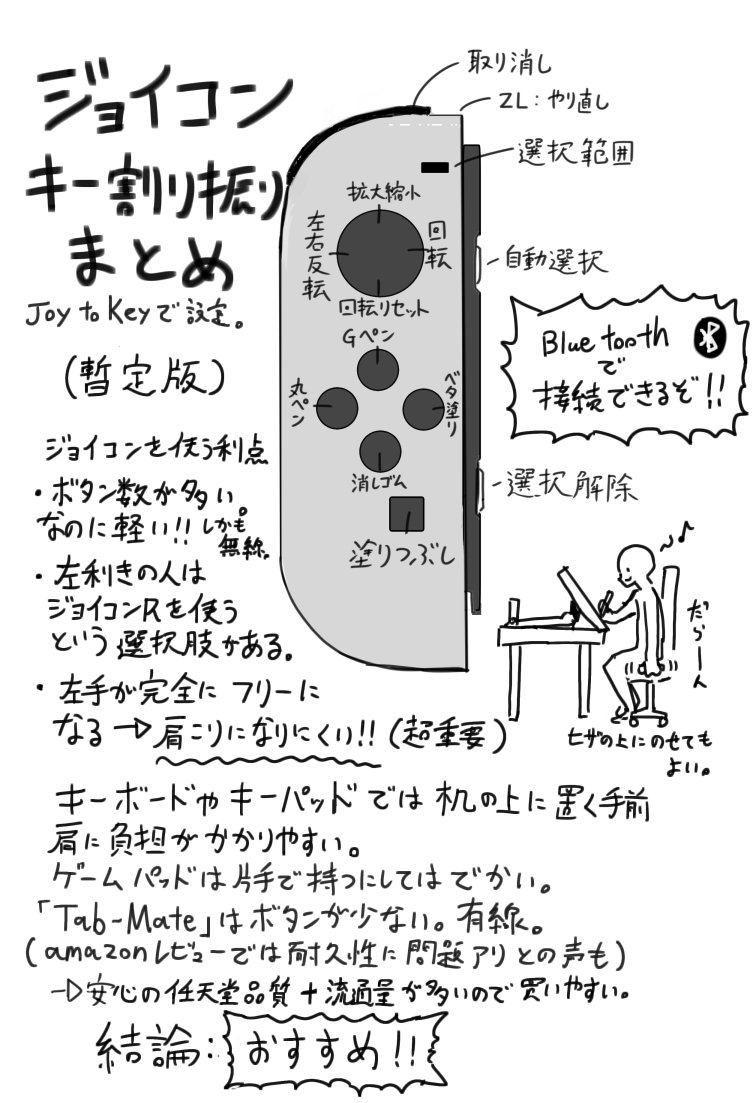 ジョイコン
キー割り振り
まとめ
Joy to Keyで設定。
(暫定版)
取り消し
ZL:やり直し
選択範囲
拡大縮小
左右反転
回転
回転リセット
自動選択
Gペン
丸ペン
ベタ塗り
消しゴム
選択解除
塗りつぶし
Bluetooth
で
接続できるぞ!!
ジョイコンを使う利点
・ボタン数が多い。
なのに軽い!!しかも
無線。
・左利きの人は
ジョイコンRを使う
という選択肢がある。
・左手が完全にフリーに
なる→肩こりになりにくい!!(超重要)
♪
だらーん
ヒザの上にのせても
よい。
キーボードやキーパッドでは机の上に置く手前
肩に負担がかかりやすい。
ゲームパッドは片手で持つにしてはでかい。
「Tab-Mate」はボタンが少ない。有線。
(amazonレビューでは耐久性に問題アリとの声も)
→安心の任天堂品質+流通量が多いので買いやすい。
結論:おすすめ!!